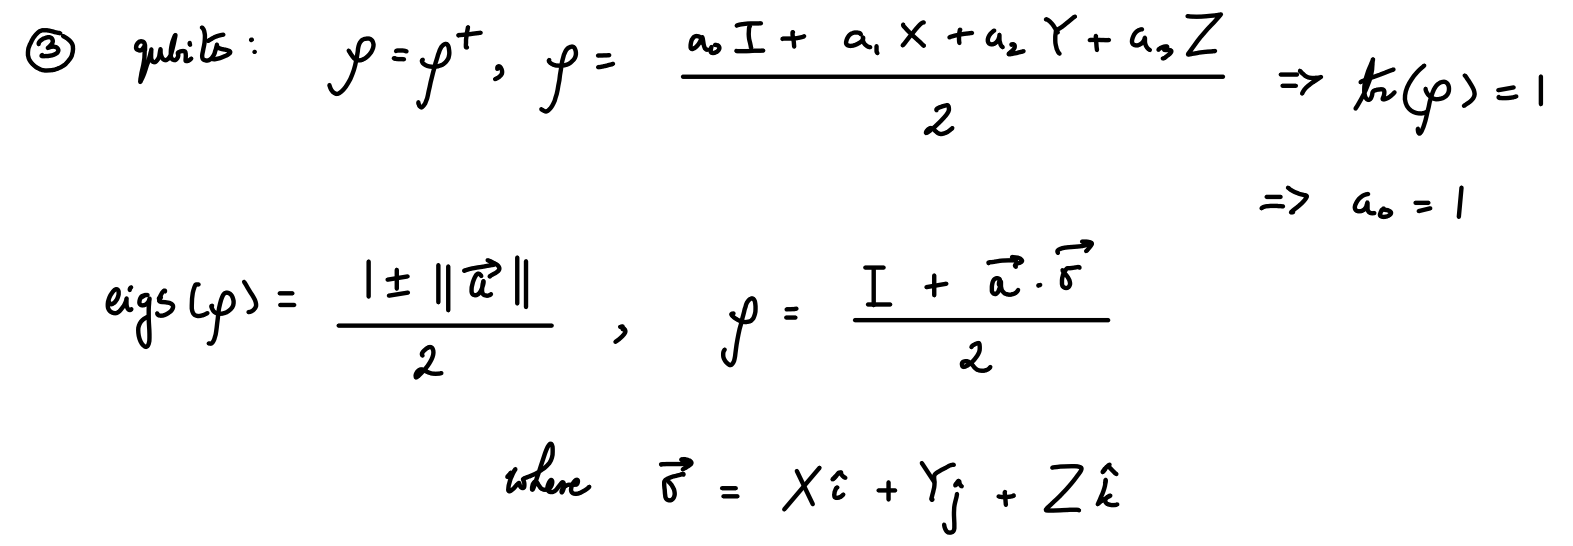 ③ qubits: ρ = ρ†, ρ = (a₀I + a₁X + a₂Y + a₃Z)/2 => tr(ρ) = 1
=> a₀ = 1
eigs(ρ) = (1 ± ‖a⃗‖)/2 , ρ = (I + a⃗ · σ⃗)/2
where σ⃗ = Xî + Yĵ + Zk̂